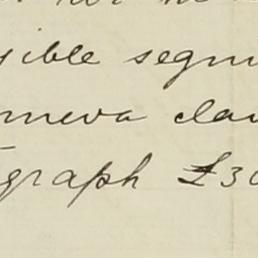 sible segm
nneva clau
graph £30